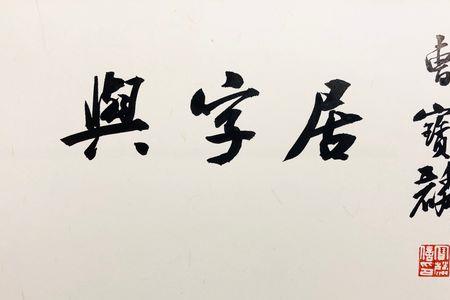 與字居
曹寶麟